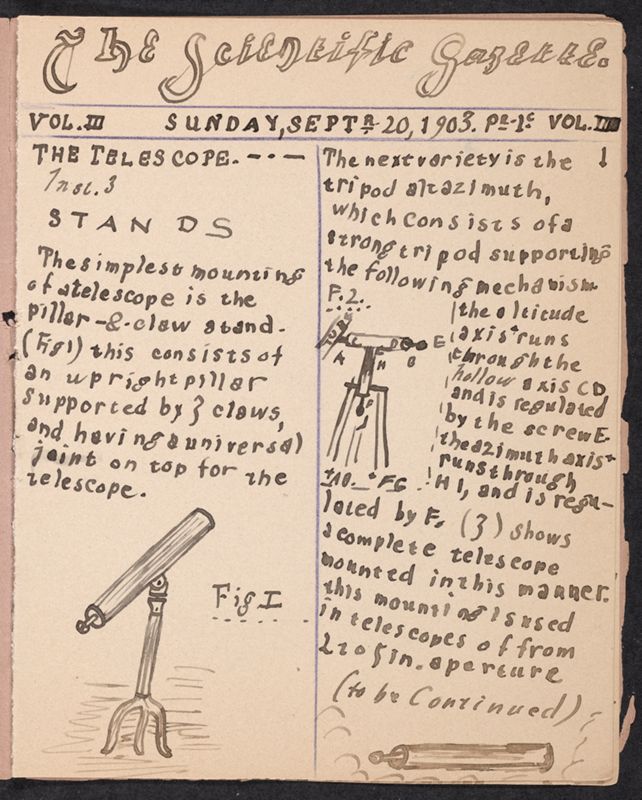 The Scientific Gazette.
VOL. III SUNDAY, SEPTR. 20, 1903. PR-1c VOL. III
THE TELESCOPE. - · -
Inst. 3
STANDS
The simplest mounting
of a telescope is the
pillar-&-claw stand.
(Fig 1) this consists of
an upright pillar
supported by 3 claws,
and having a universal
joint on top for the
telescope.
Fig I
The next variety is the
tripod altazimuth,
which consists of a
strong tripod supporting
the following mechanism
F. 2.
the altitude
axis + runs
through the
hollow axis CD
and is regulated
by the screw E.
the azimuth axis +
runs through
H I, and is regu-
A
D
E
H
B
+ FG
lated by F. (3) shows
a complete telescope
mounted in this manner.
this mounting is used
in telescopes of from
2 to 5 in. aperture
(to be Continued)